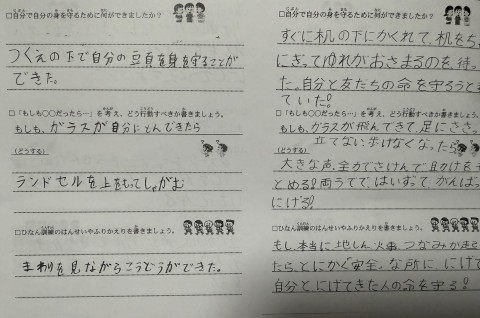 □自分で自分の身を守るために何ができましたか？
つくえの下で自分の頭を身を守ることが
できた。
□「もしも○○だったら…」を考え、どう行動すべきか書きましょう。
もしも、ガラスが自分にとんできたら
(どうする)
ランドセルを上をもってしゃがむ
□ひなん訓練のはんせいやふりかえりを書きましょう。
まわりを見ながらこうどうができた。
□自分で自分の身を守るために何ができましたか？
すぐに机の下にかくれて、机をち
にぎってゆれがおさまるのを、待っ
た。自分と友だちの命を守ろうと
ていた!
□「もしも○○だったら…」を考え、どう行動すべきか書きましょう。
もしも、ガラスが飛んできて、足にささ
(どうする)
立てない歩けなくなったら
大きな声、全力でさけんで助けを
とめる!両うでで、はいずって、がんばっ
にげる!
□ひなん訓練のはんせいやふりかえりを書きましょう。
もし、本当に地しん、火事、つなみがおこ
たら、とにかく安全な所に、にげて
自分と、にげてきた人の命を守る!